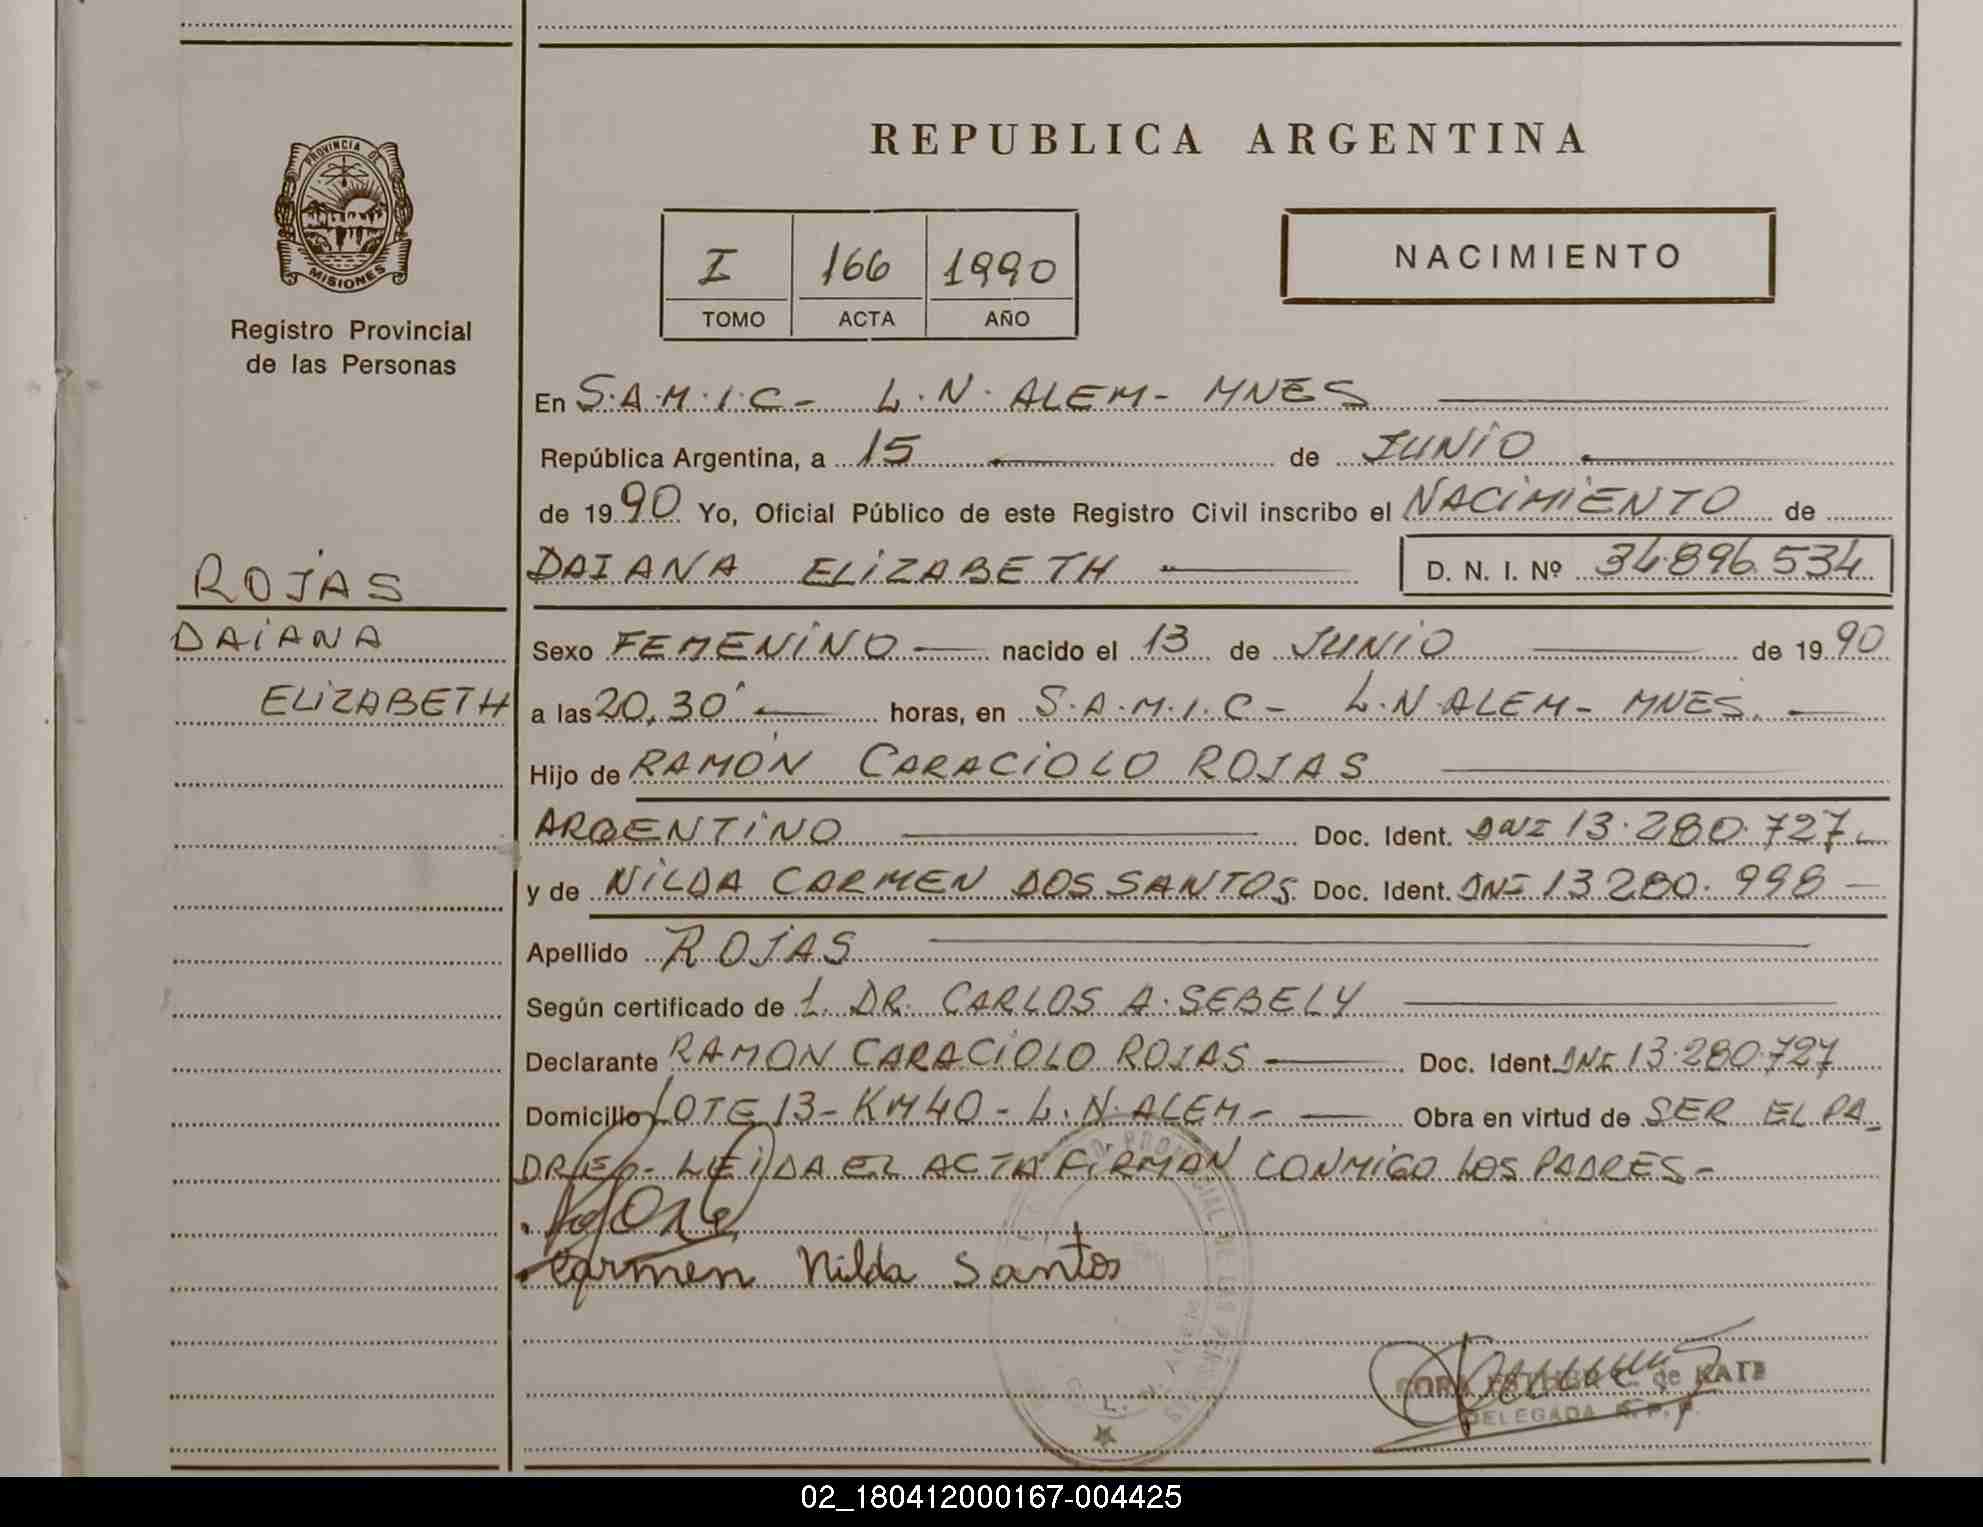 PROVINCIA DE
MISIONES
Registro Provincial
de las Personas
ROJAS
DAIANA
ELIZABETH
REPUBLICA ARGENTINA
I 166 1990
TOMO ACTA AÑO
NACIMIENTO
En S.A.M.I.C- L.N. ALEM- MNES
República Argentina, a 15 de JUNIO
de 1990 Yo, Oficial Público de este Registro Civil inscribo el NACIMIENTO de
DAIANA ELIZABETH D. N. I. Nº 34.896.534
Sexo FEMENINO nacido el 13 de JUNIO de 1990
a las 20,30 horas, en S.A.M.I.C- L.N ALEM- MNES.
Hijo de RAMÓN CARACIOLO ROJAS
ARGENTINO Doc. Ident. DNI 13.280.727.-
y de NILDA CARMEN DOS SANTOS Doc. Ident. DNI 13280.998 -
Apellido ROJAS
Según certificado de 1. DR. CARLOS A. SEBELY
Declarante RAMON CARACIOLO ROJAS Doc. Ident. DNI 13.280.727
Domicilio LOTE 13- KM40- L.N. ALEM- Obra en virtud de SER EL PA-
DRE.- LEIDA EL ACTA FIRMAN CONMIGO LOS PADRES-
Carmen Nilda Santos
de KATZ
DELEGADA R.P.P.
02_180412000167-004425